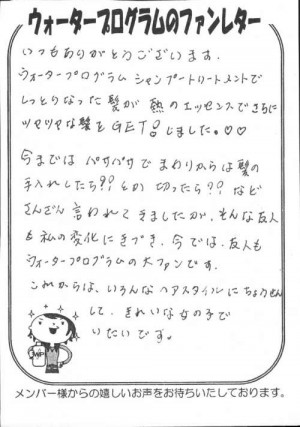 ウォータープログラムのファンレター
いつもありがとうございます。
ウォータープログラム シャンプートリートメントで
しっとりなった髪が 熱のエッセンスでさらに
ツヤツヤな髪をGET!しました。♡♡
今までは パサパサで まわりからは髪の
手入れしたら?!とか 切ったら?? など
さんざん 言われて きましたが、そんな友人
も 私の変化にきづき、今では、友人も
ウォータープログラムの大ファンです。
これからは、いろんなヘアスタイルにちょうせん
して、きれいな女の子で
いたいです。
メンバー様からの嬉しいお声をお待ちいたしております。